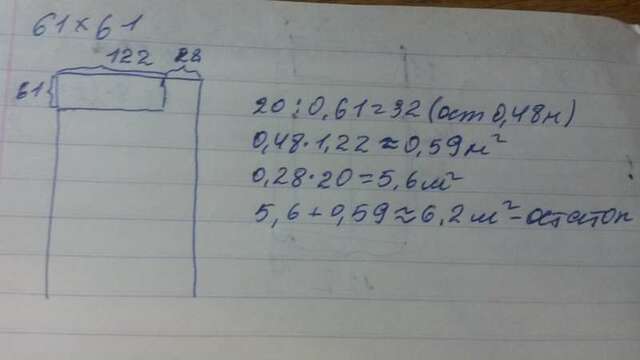 61×61
122 28
61
20:0,61=32 (ост 0,48м)
0,48·1,22≈0,59м²
0,28·20=5,6м²
5,6+0,59≈6,2м²-остаток